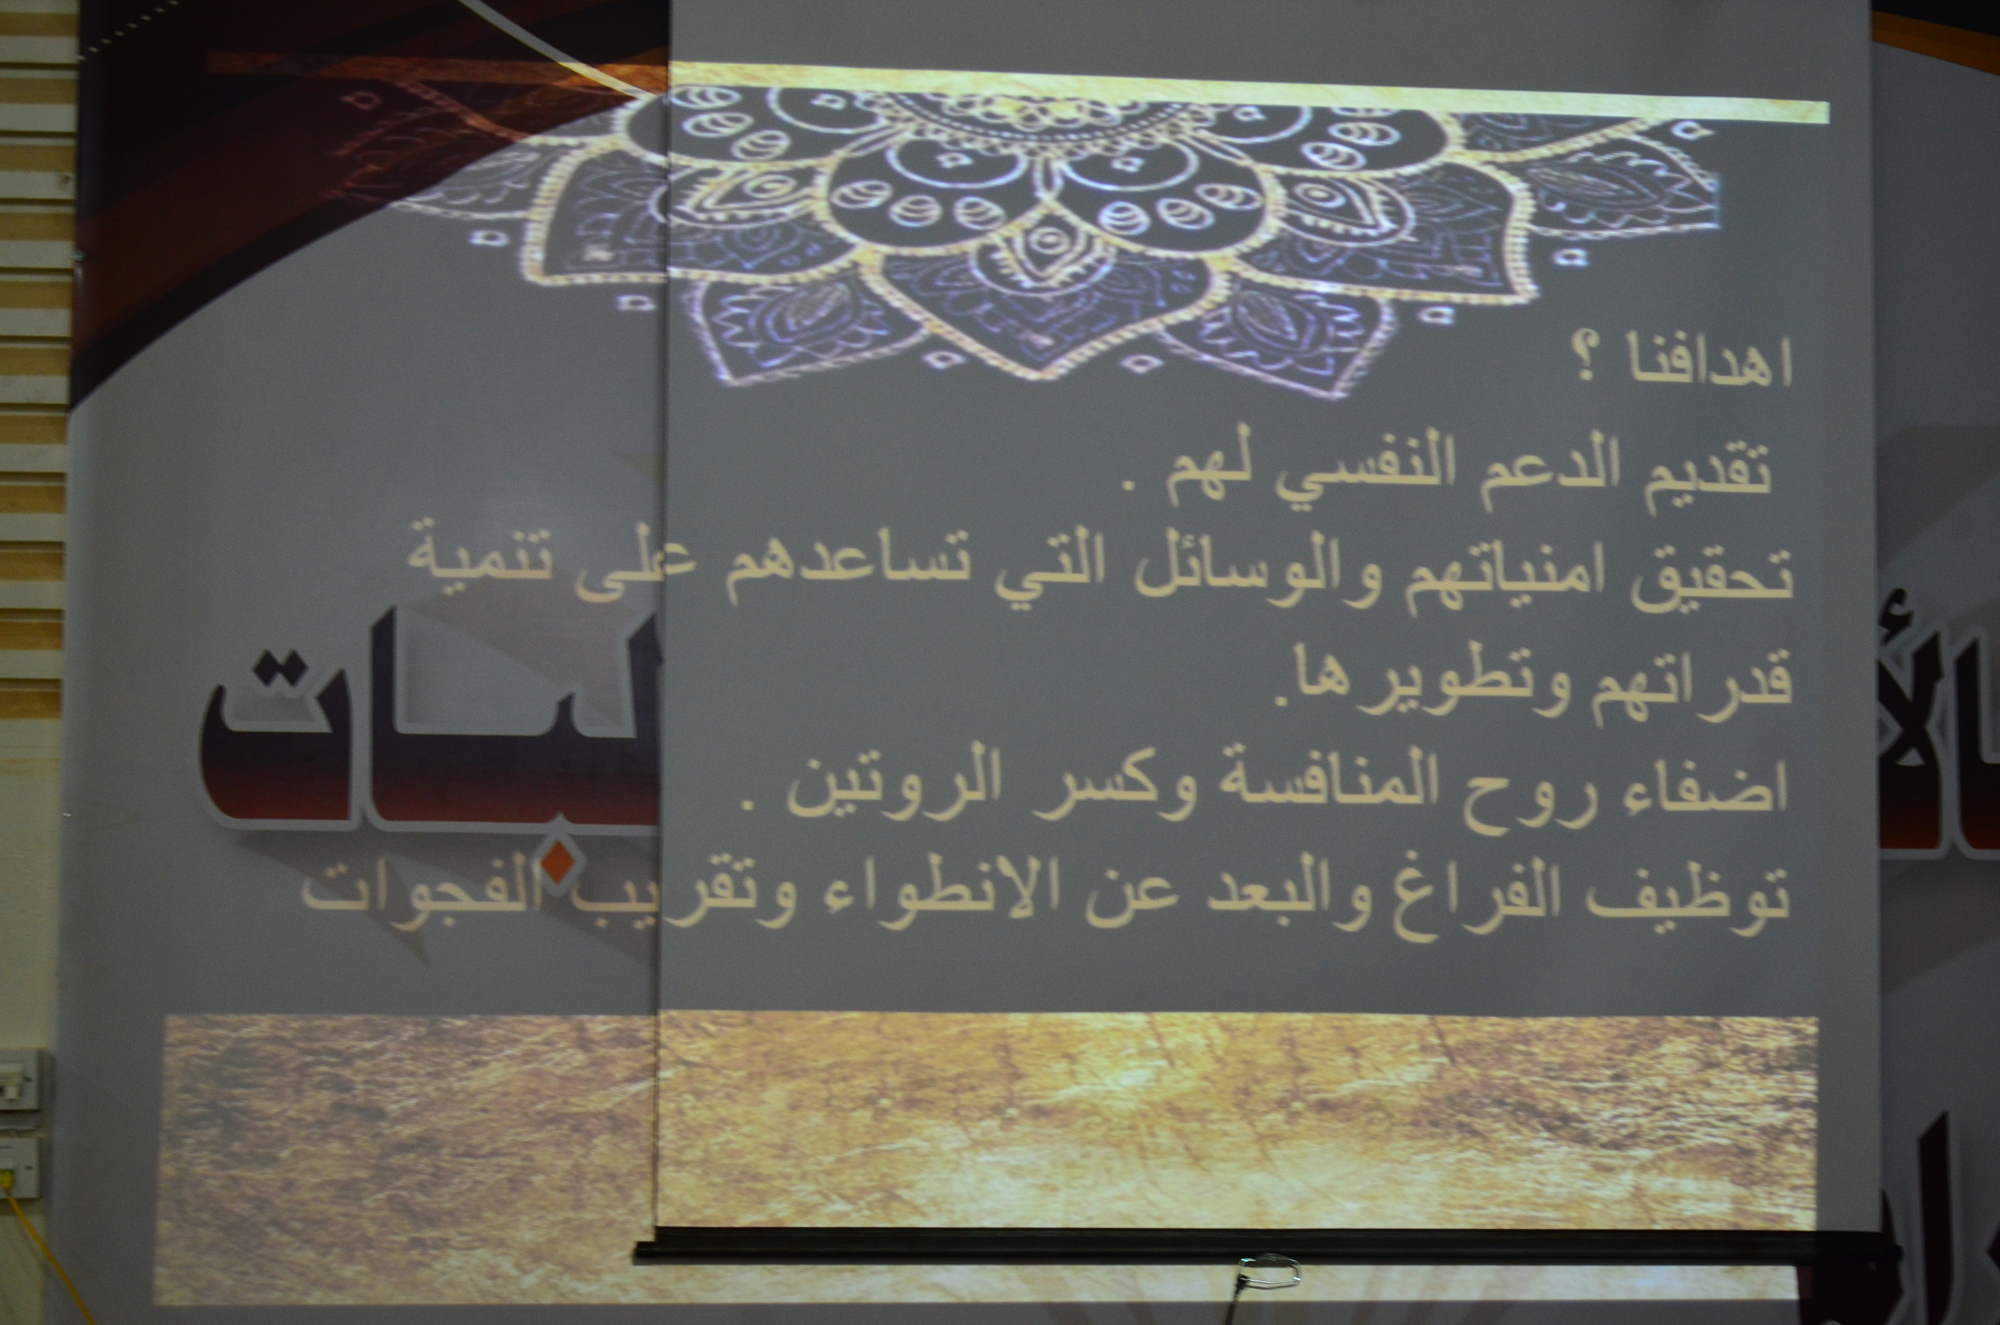 اهدافنا ؟
تقديم الدعم النفسي لهم .
تحقيق امنياتهم والوسائل التي تساعدهم على تنمية
قدراتهم وتطويرها.
اضفاء روح المنافسة وكسر الروتين .
توظيف الفراغ والبعد عن الانطواء وتقريب الفجوات